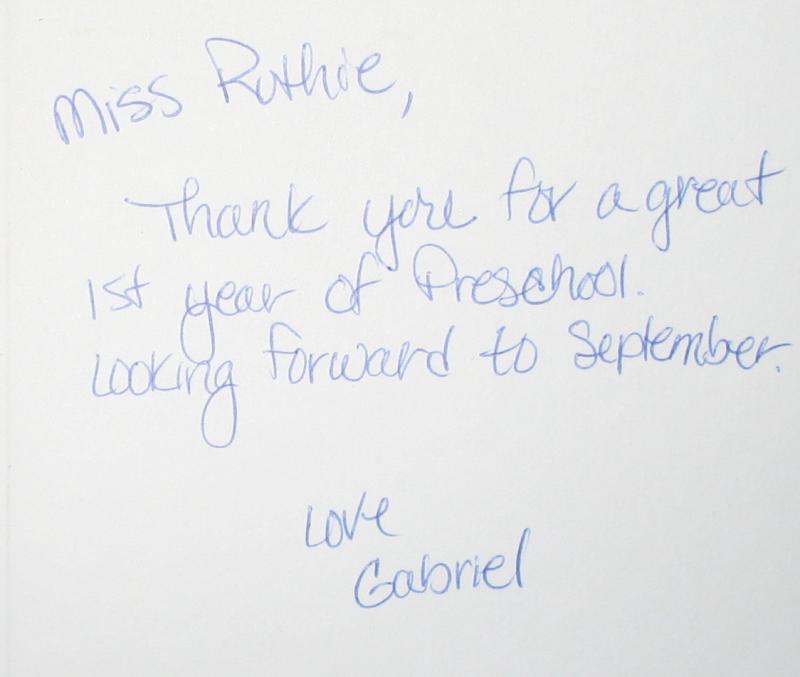 Miss Ruthie,
Thank you for a great
1st year of Preschool.
Looking forward to September.
Love
Gabriel